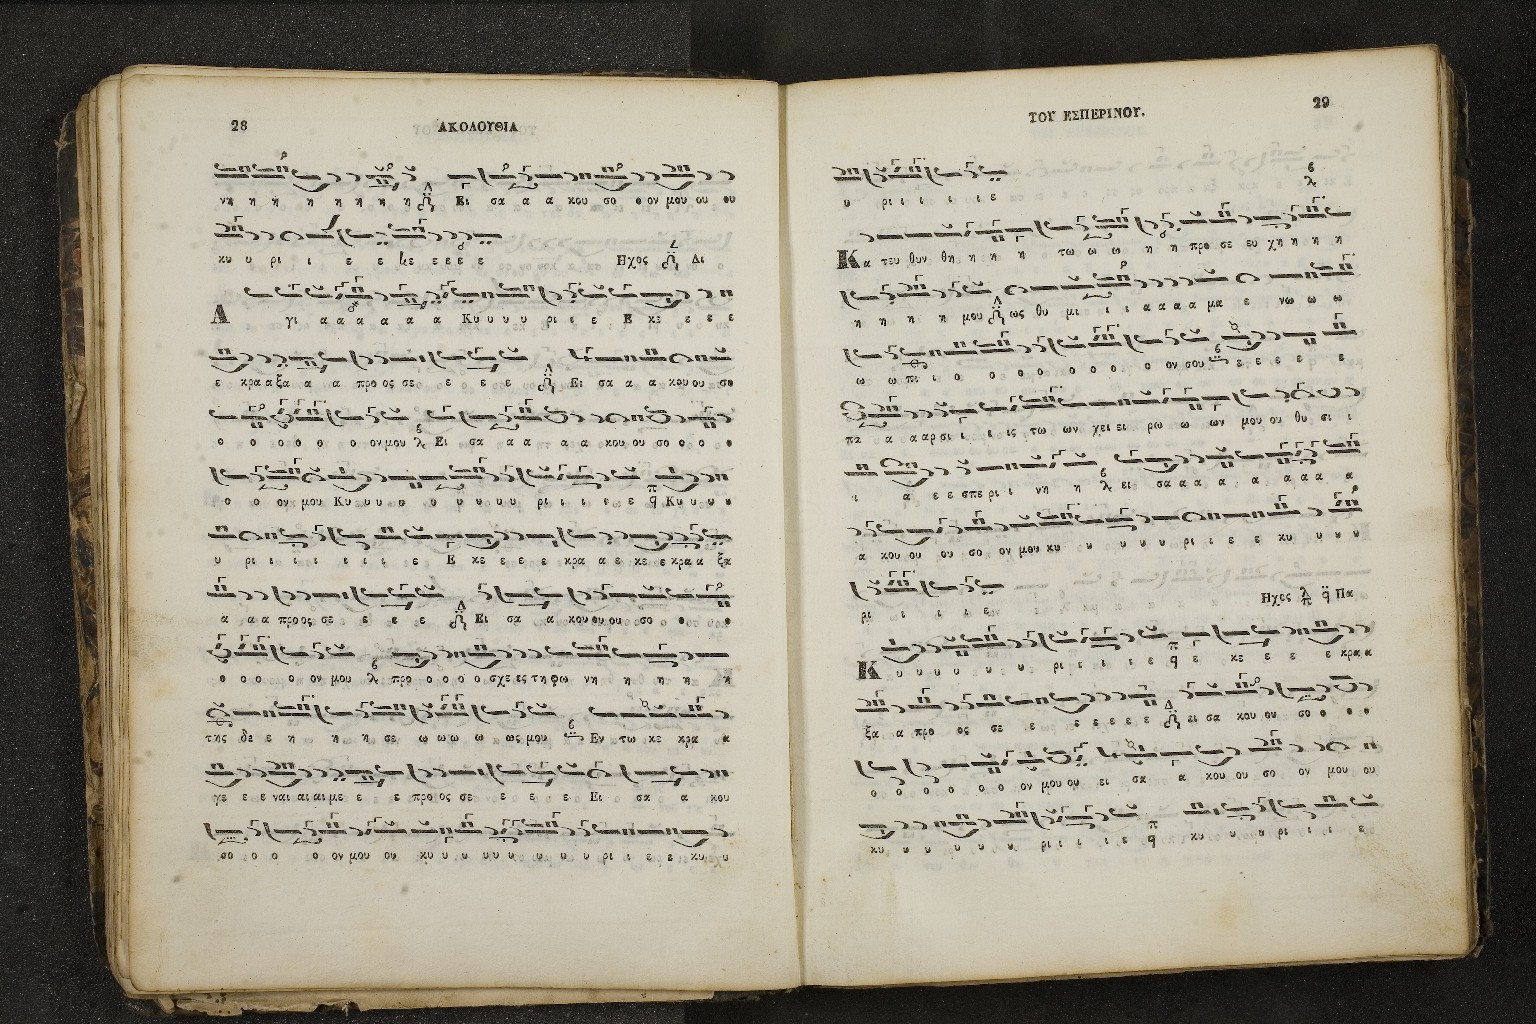 28
ΑΚΟΛΟΥΘΙΑ
νη η η η η η η η Ει σα α α κου σο ο ον μου ου ου
κυ υ υ ρι ι ε ε ε ε ε ε Ηχος Δι
Α γι α α α α α α Κυ υ υ υ ρι ι ε Ε κε ε ε ε
ε κρα α ξα α α προ ος σε ε ε ε ε Ει σα α α κου ου σο
ο ο ο ο ο ο ο ον μου Ει σα α α α α κου ου σο ο ο ο
ο ο ον μου Κυ υ υ υ υ υ υ υ υ ρι ι ι ι ε Κυ υ υ υ
υ ρι ι ι ι ι ι ι ε Ε κε ε ε ε κρα α ε κε κρα α ξα
α α α προ ος σε ε ε ε ε Ει σα α κου ου ου σο ο ο
ο ο ο ο ον μου προ ο ο ο ο σχε ες τη φω νη η η η η
της δε ε η η η σε ω ω ω ω ως μου Εν τω κε κρα α
γε ε ε ναι αι αι με ε ε προ ος σε ε ε ε ε Ει σα α κου
σο ο ο ο ον μου ου κυ υ υ υ υ υ υ υ υ ρι ι ε ε κυ υ
29
ΤΟΥ ΕΣΠΕΡΙΝΟΥ.
υ ρι ι ι ι ε
Κα τευ θυν θη η η η τω ω ω η η προ σε ευ χη η η η
η η η η μου ως θυ μι ι α α α α μα ε νω ω ω
ω ω πι ο ο ο ο ο ο ο ον σου ε ε ε ε ε
πα α α αρ σι ι ι ις τω ων χει ει ρω ω ων μου ου θυ σι ι
ι α ε εσπε ρι ι νη η ει σα α α α α α α α
α κου ου ου σο ον μου κυ υ υ υ υ ρι ι ε ε κυ υ υ υ
ρι ι ι ι ε Ηχος Πα
Κυ υ υ υ υ υ ρι ι ι ι ε ε κε ε ε ε κρα α
ξα α προ ος σε ε ε ε ε ε ε ει σα κου ου σο ο ο ο
ο ο ο ο ο ο ον μου ου ει σα α κου ου σο ον μου ου
κυ υ υ υ υ υ ρι ι ι ι ε κυ υ υ ρι ι ι ε